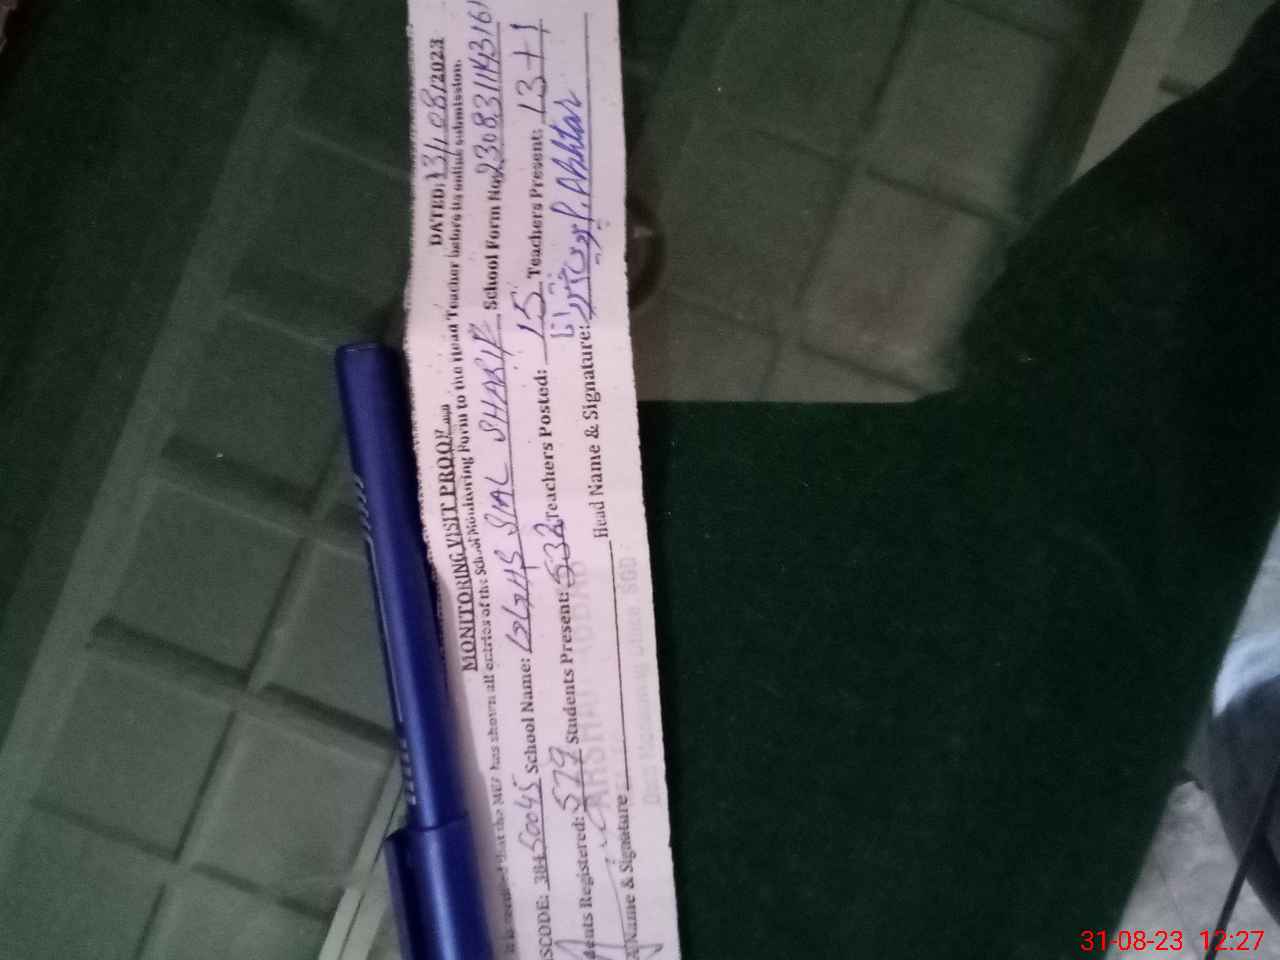 MONITORING VISIT PROOF
DATED: 13/08/2023
that the MEA has shown all entries of the School Monitoring Form to the Head Teacher before its online submission.
SCODE: 38450045 School Name: SIAL SHARIF School Form No. 2308311143161
ents Registered: 579 Students Present: 532 Teachers Posted: 15 Teachers Present: 13+1
Name & Signature Head Name & Signature: P. Akhtar
31-08-23 12:27